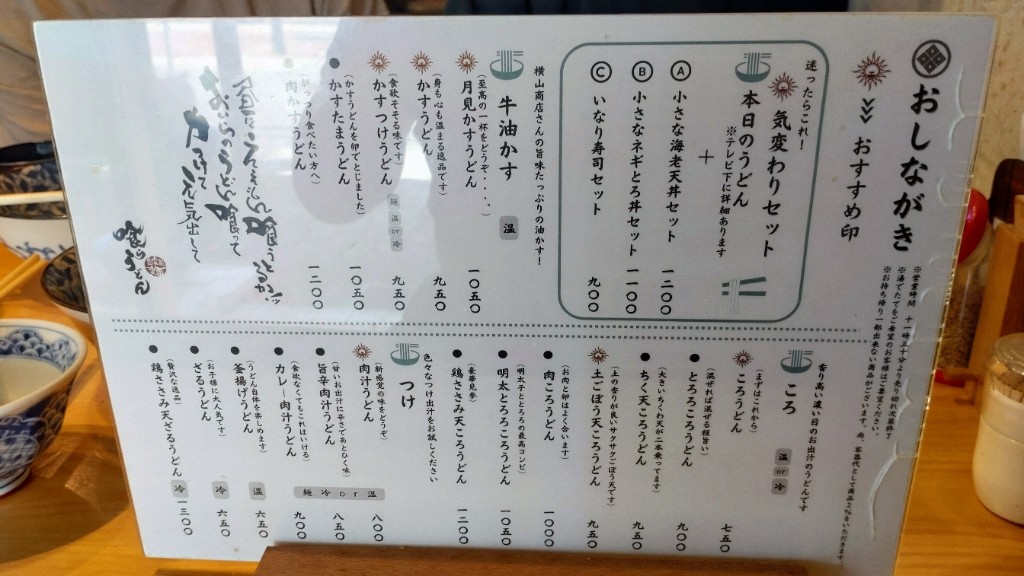 おしながき
おすすめ印
※営業時間 十一時三十分より売り切れ次第終了
※お持ち帰り一部出来ない商品がございます。
迷ったらこれ！
気変わりセット
本日のうどん
※テレビ下に詳細あります
＋
Ⓐ 小さな海老天丼セット 一二〇〇
Ⓑ 小さなネギとろ丼セット 一一〇〇
Ⓒ いなり寿司セット 九〇〇
横山商店さんの旨味たっぷりの油かす！
牛油かす 温
（至高の一杯をどうぞ・・・・）
月見かすうどん 一〇五〇
（身も心も温まる逸品です）
かすうどん 九五〇
（食欲そそる味です）
かすつけうどん 麺 温 or 冷 九五〇
（かすうどんを卵でとじました）
かすたまうどん 一〇五〇
肉かすうどん 一二〇〇
香り高い濃い口のお出汁のうどんです
ころ 温 or 冷
（まずはこれから）
ころうどん 七五〇
（混ぜれば混ぜる程旨い）
とろろころうどん 九〇〇
（大きいちくわ天が二本乗ってます）
ちく天ころうどん 九五〇
（土の香りが良いサクサクごぼう天です）
土ごぼう天ころうどん 九五〇
（お肉と卵はよく合います）
肉ころうどん 一〇〇〇
（明太子ととろろの最高コンビ）
明太とろろころうどん 一〇五〇
（豪華見参）
鶏ささみ天ころうどん 一二〇〇
色々なつけ出汁をお試しください
つけ
（新感覚の味をどうぞ）
肉汁うどん 八〇〇
（甘いお出汁に辛さであとひく味）
旨辛肉汁うどん 八五〇
（食欲なくてもこれはいける）
カレー肉汁うどん 九〇〇
麺 冷 or 温
（うどん自体を楽しめます）
釜揚げうどん 温 六五〇
（お子様に大人気です）
ざるうどん 冷 六五〇
（贅沢な逸品）
鶏ささみ天ざるうどん 冷 一三〇〇